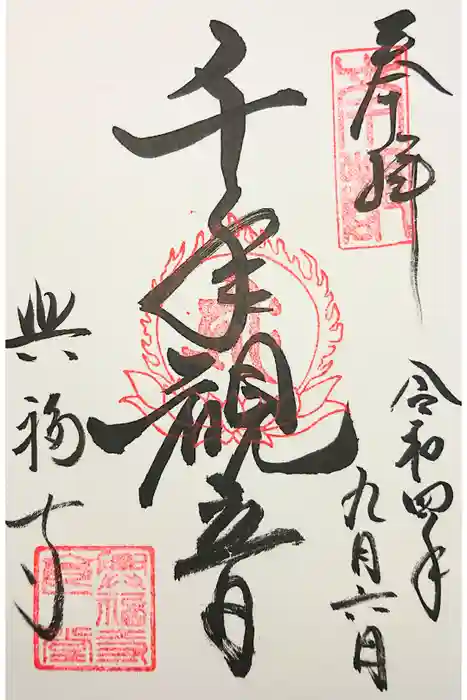 奉拝
令和四年
九月六日
千手観音
興福寺